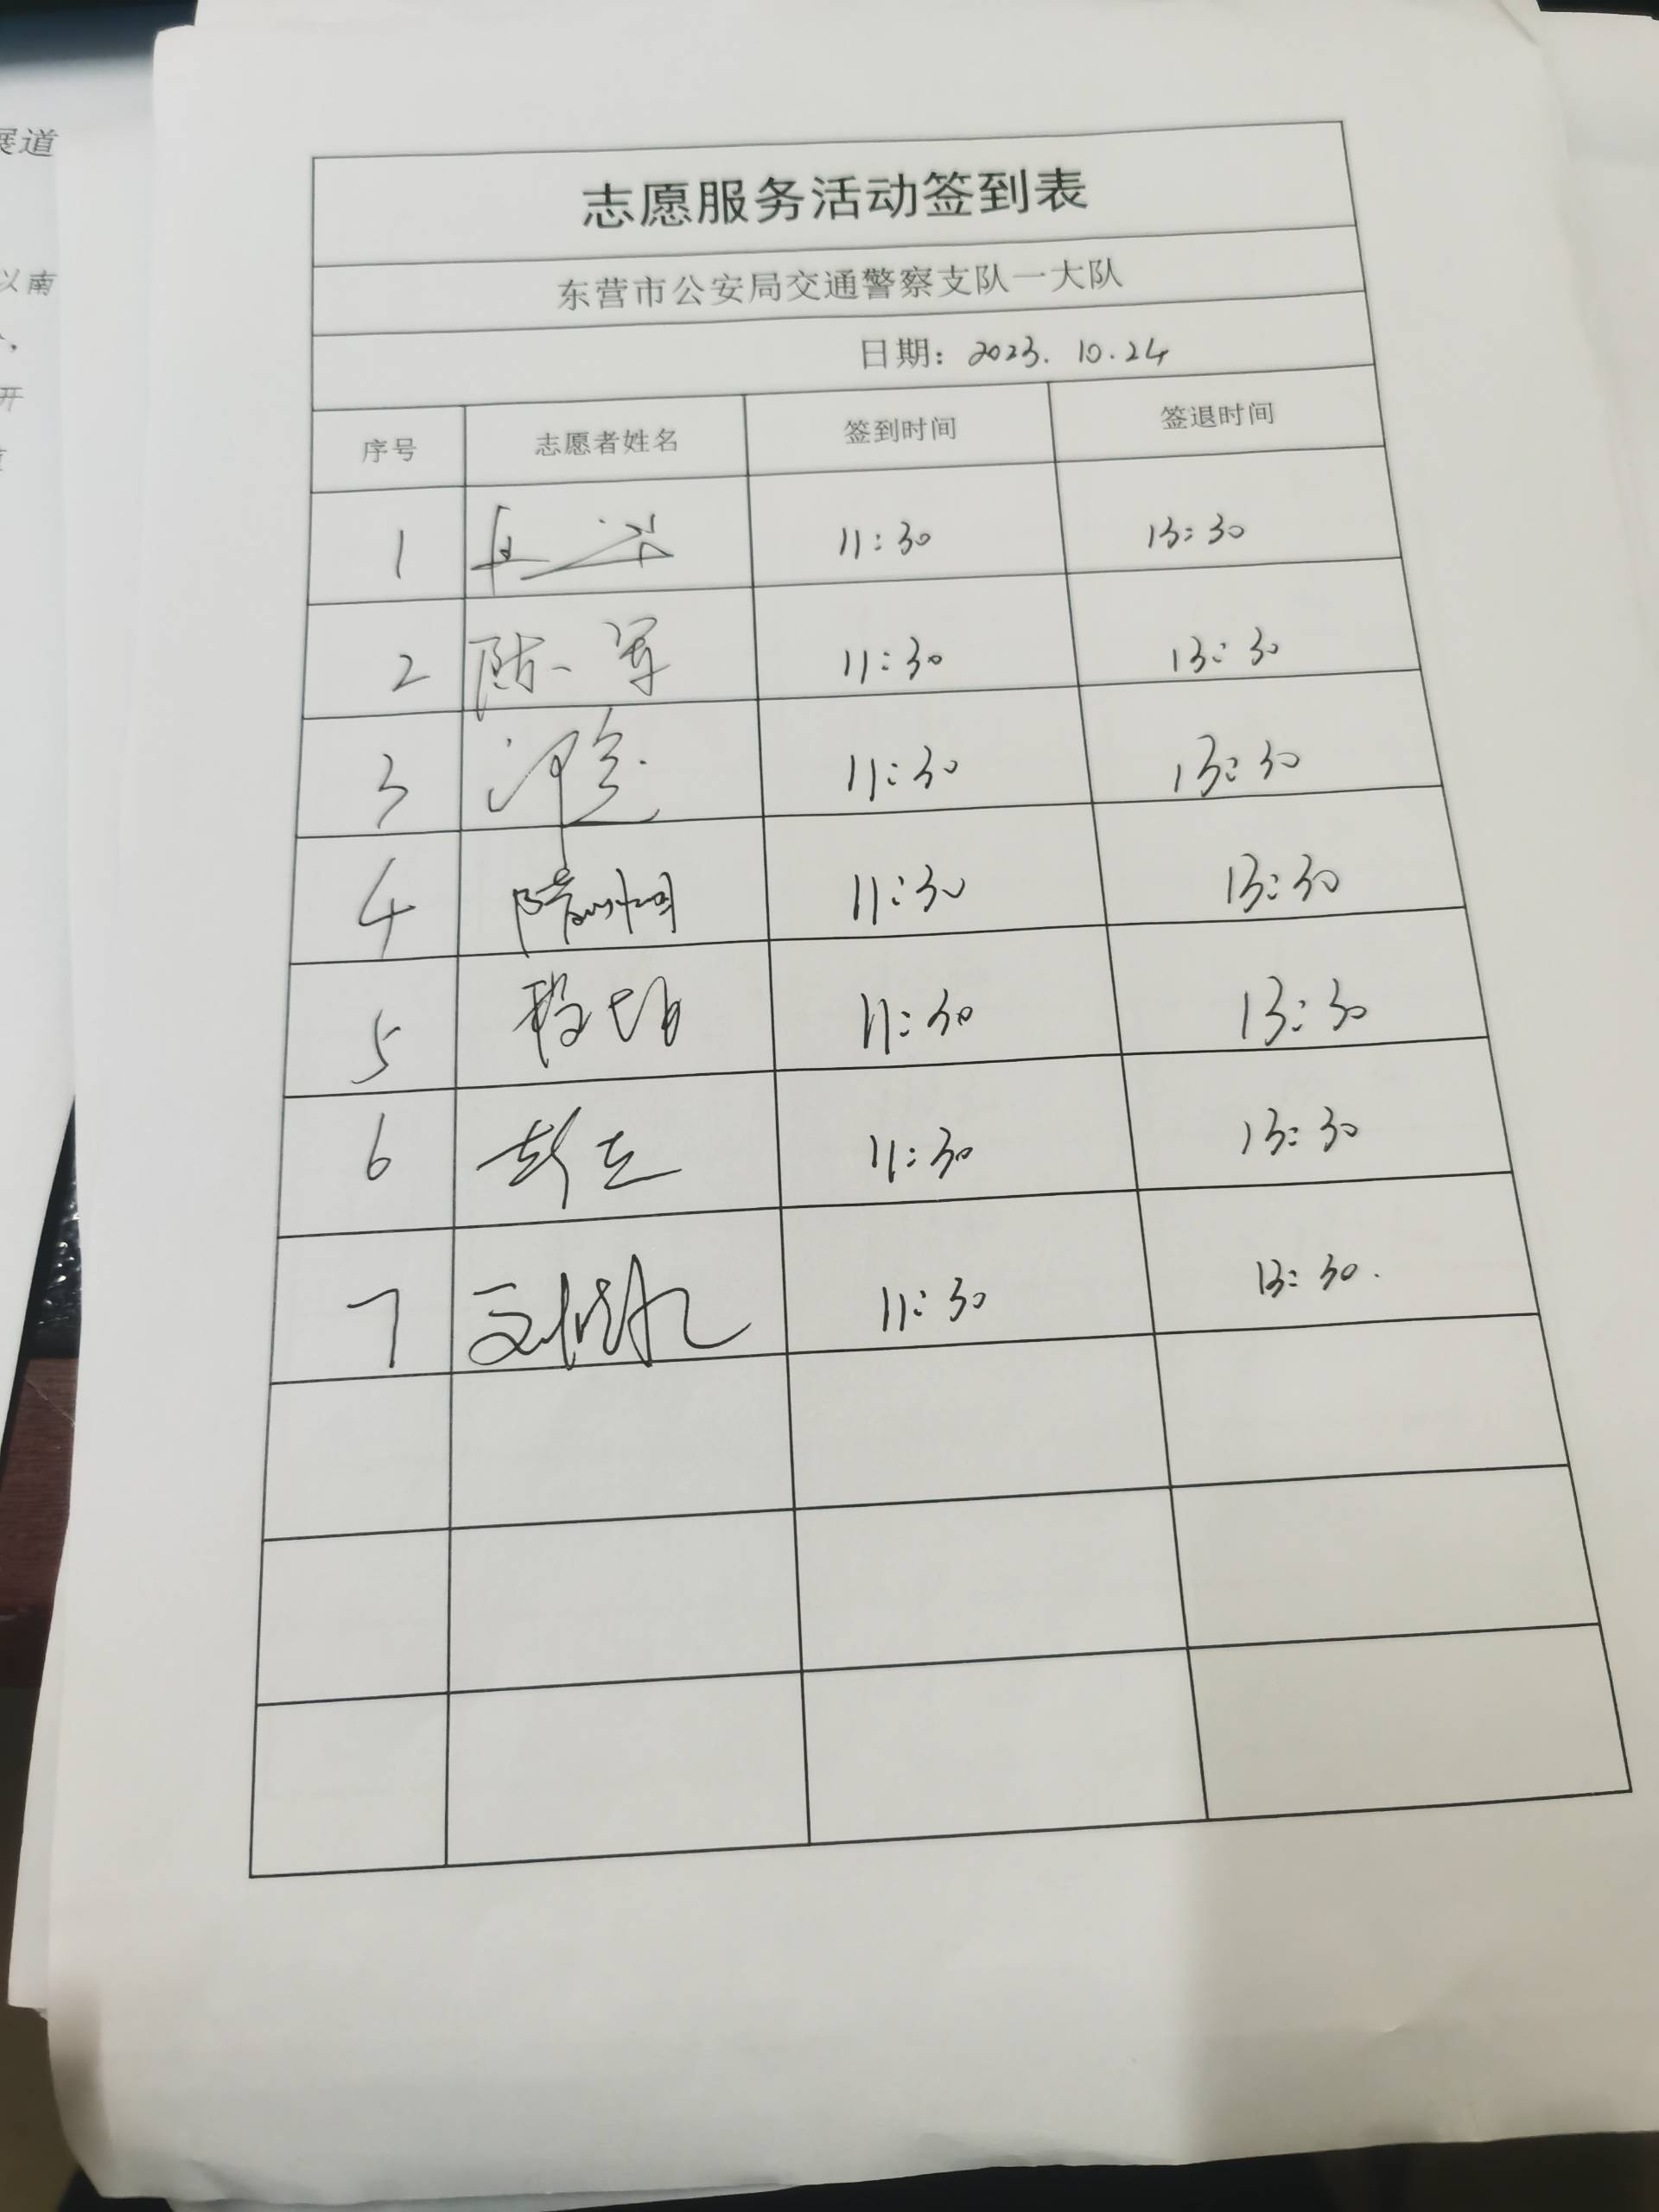 展道
以南
开
志愿服务活动签到表
东营市公安局交通警察支队一大队
日期: 2023. 10. 24
序号 志愿者姓名 签到时间 签退时间
1 11:30 13:30
2 11:30 13:30
3 11:30 13:30
4 11:30 13:30
5 11:30 13:30
6 11:30 13:30
7 11:30 13:30.